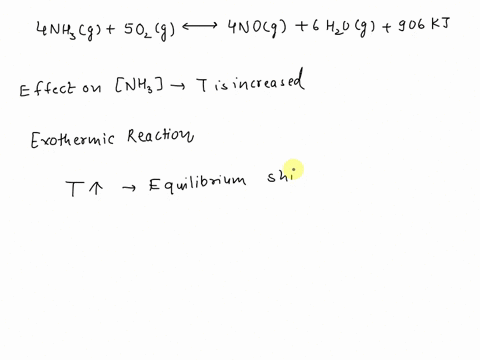 4NH₃(g) + 5O₂(g) ⟷ 4NO(g) + 6H₂O(g) + 906 KJ
Effect on [NH₃] → T is increased
Exothermic Reaction
T↑ → Equilibrium shi